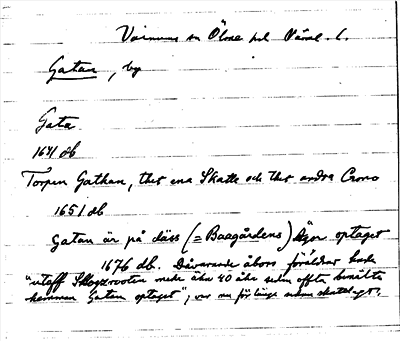 Väsnums sn Ölme hd Värml. l.
Gatan, by
Gata
1641 db
Torpen Gathan, thet ena Skatte och thet andra Crono
1651 db
Gatan är på däss (= Baagårdens) ägor optaget
1676 db. Dåvarande åbons föräldrar hade
"utaff Skogzrooten mehr ähn 40 åhr sedan offta benälte
hemman Gatan optaget", var nu för länge sedan skattlagt.